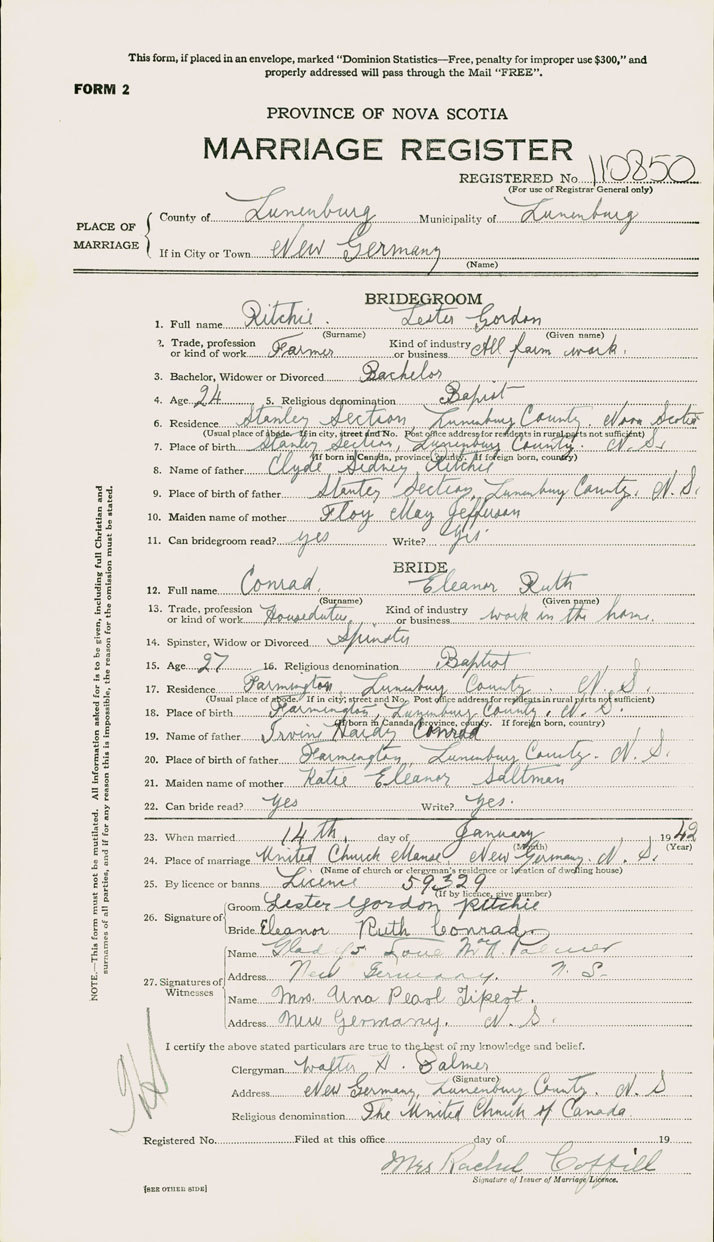 This form, if placed in an envelope, marked "Dominion Statistics—Free, penalty for improper use $300," and
properly addressed will pass through the Mail "FREE".
FORM 2
PROVINCE OF NOVA SCOTIA
MARRIAGE REGISTER
REGISTERED No. 110850
(For use of Registrar General only)
PLACE OF MARRIAGE
County of Lunenburg Municipality of Lunenburg
If in City or Town New Germany
(Name)
BRIDEGROOM
1. Full name Ritchie. Lester Gordon
(Surname) (Given name)
2. Trade, profession or kind of work Farmer Kind of industry or business All farm work.
3. Bachelor, Widower or Divorced Bachelor
4. Age 24 5. Religious denomination Bapist
6. Residence Stanley Section, Lunenburg County, Nova Scotia
(Usual place of abode. If in city, street and No. Post office address for residents in rural parts not sufficient)
7. Place of birth Stanley Section, Lunenburg County. N. S.
(If born in Canada, province, county. If foreign born, country)
8. Name of father Clyde Sidney Ritchie
9. Place of birth of father Stanley Section, Lunenburg County, N. S.
10. Maiden name of mother Floy May Jefferson
11. Can bridegroom read? yes Write? yes
BRIDE
12. Full name Conrad. Eleanor Ruth
(Surname) (Given name)
13. Trade, profession or kind of work Houseduties Kind of industry or business work in the home.
14. Spinster, Widow or Divorced Spinster
15. Age 27 16. Religious denomination Baptist
17. Residence Farmington, Lunenburg County. N. S.
(Usual place of abode. If in city, street and No. Post office address for residents in rural parts not sufficient)
18. Place of birth Farmington, Lunenburg County. N. S.
(If born in Canada, province, county. If foreign born, country)
19. Name of father Irvin Hardy Conrad
20. Place of birth of father Farmington, Lunenburg County. N. S.
21. Maiden name of mother Katie Eleanor Saltman
22. Can bride read? Yes Write? Yes.
23. When married 14th, day of January, 1942
(Month) (Year)
24. Place of marriage United Church Manse, New Germany, N. S.
(Name of church or clergyman's residence or location of dwelling house)
25. By licence or banns Licence 59329
(If by licence, give number)
26. Signature of
Groom Lester Gordon Ritchie
Bride Eleanor Ruth Conrad
27. Signatures of Witnesses
Name Palmer
Address New Germany. N. S.
Name Mrs. Una Pearl
Address New Germany. N. S.
I certify the above stated particulars are true to the best of my knowledge and belief.
Clergyman Walter H. Palmer
(Signature)
Address New Germany, Lunenburg County. N. S
Religious denomination The United Church of Canada.
Registered No. Filed at this office day of 19
Mrs Rachel Coffill
Signature of Issuer of Marriage Licence.
[SEE OTHER SIDE]
NOTE.—This form must not be mutilated. All information asked for is to be given, including full Christian and
surnames of all parties, and if for any reason this is impossible, the reason for the omission must be stated.